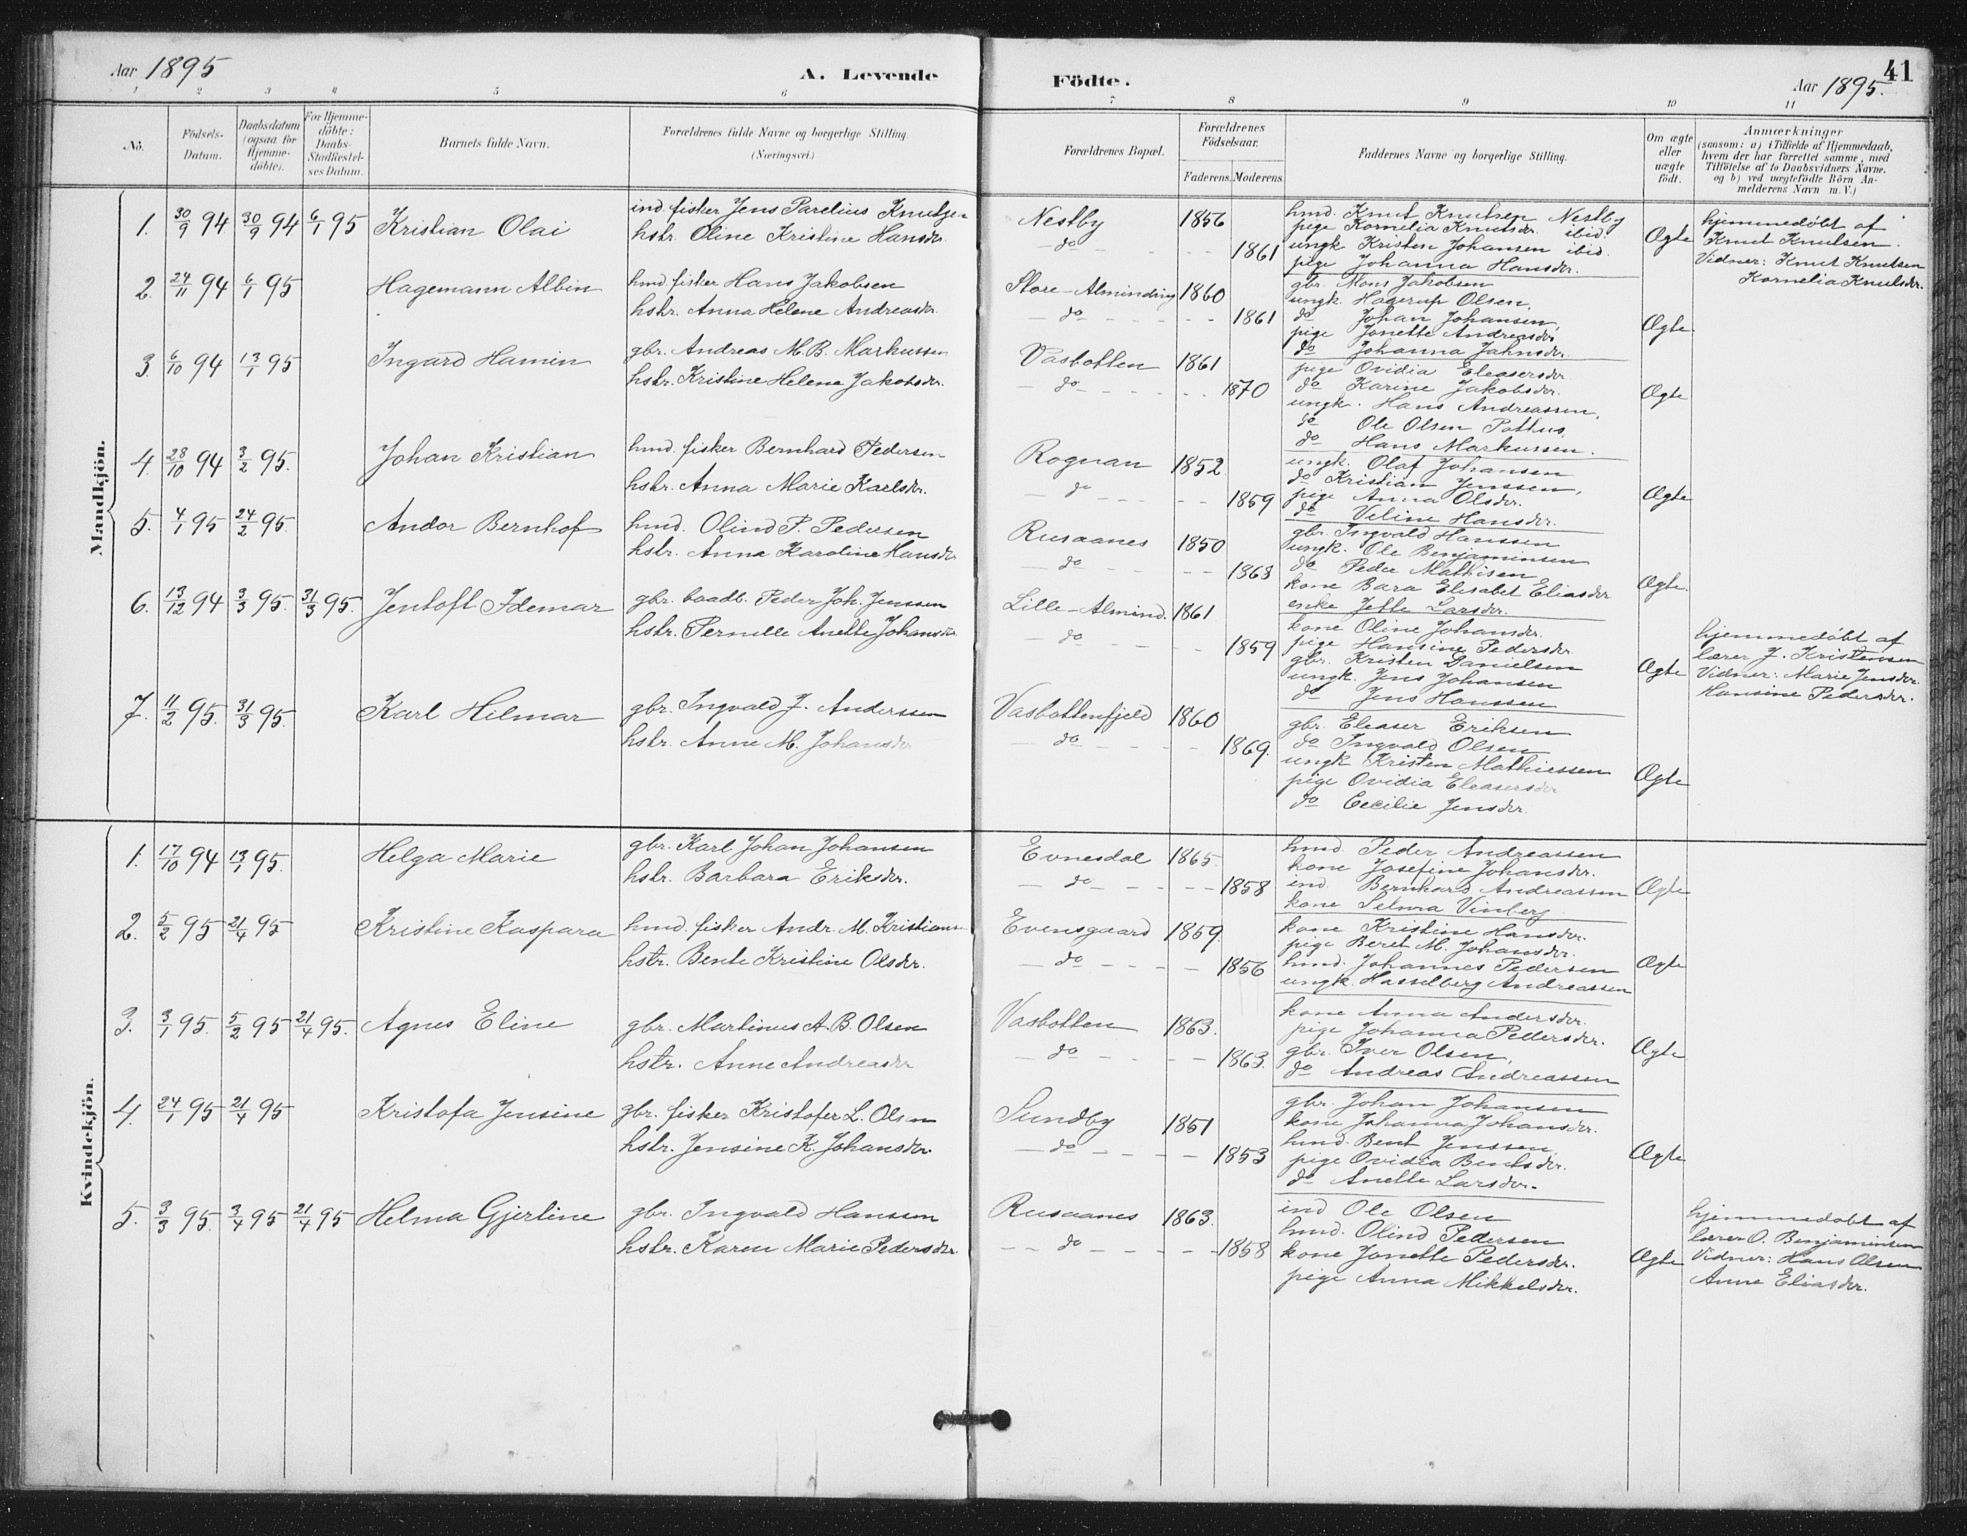 Aar 1895
A. Levende
Födte.
Aar 1895.
41
1 2 3 4 5 6 7 8 9 10 11
No.
Födsels-
Datum.
Daabsdatum
(ogsaa for
Hjemme-
döbte).
For Hjemme-
döbte:
Daabs-
Stadfæstel-
ses Datum.
Barnets fulde Navn.
Forældrenes fulde Navne og borgerlige Stilling.
(Næringsvei.)
Forældrenes Bopæl.
Forældrenes
Födselsaar.
Faderens. Moderens.
Faddernes Navne og borgerlige Stilling.
Om ægte
eller
uægte
födt.
Anmærkninger
(saasom: a) i Tilfælde af Hjemmedaab,
hvem der har forrettet samme, med
Tilföielse af to Daabsvidners Navne.
og b) ved uægtefödte Börn An-
melderens Navn m. V.)
Mandkjön.
1. 30/9 94 30/9 94 6/1 95 Kristian Olai
ind. fisker Jens Parelius Knutsen
hstr. Oline Kristine Hansdr.
Nestby 1856
do 1861
hmd. Knut Knutsen Nestby
pige Kornelia Knutsdr. ibid.
ungk Kristen Johansen ibid.
pige Johanna Hansdr.
Ægte
hjemmedøbt af
Knut Knutsen.
Vidner: Knut Knutsen
Kornelia Knutsdr.
2. 24/11 94 6/1 95 Hagemann Albin
hmd fisker Hans Jakobsen
hstr. Anna Helene Andreasdr.
Store-Alminding 1860
do 1861
gbr. Mons Jakobsen
ungk. Hagerup Olsen,
do Johan Johansen
pige Jonette Andreasdr
do Johanna Jahnsdr.
Ægte
3. 6/10 94 13/1 95 Ingard Hamin
gbr. Andreas M. B. Markussen
hstr. Kristine Helene Jakobsdr.
Vasbotten 1861
do 1870
pige Ovidia Eleasersdr
do Karine Jakobsdr.
ungk. Hans Andreassen,
do Ole Olsen Pothus
do Hans Markussen.
Ægte
4. 28/10 94 3/2 95. Johan Kristian
hmd. fisker Bernhard Pedersen
hstr. Anna Marie Karlsdr.
Rognan 1852
do 1859
ungk. Olaf Johansen
do Kristian Jenssen,
pige Anna Olsdr.
do Veline Hansdr.
Ægte
5. 4/1 95 24/2 95. Andor Bernhof
hmd. Olind P. Pedersen
hstr. Anna Karoline Hansdr
Rusaanes 1850
do 1863
gbr. Ingvald Hanssen
ungk. Ole Benjaminsen
do Peder Mathisen
kone Bara Elisabet Eliasdr
enke Jette Larsdr.
Ægte.
6. 13/12 94 3/3 95. 31/3 95. Jentoft Idemar
gbr. baadb. Peder Joh. Jenssen
hstr. Pernille Anette Johansdr.
Lille-Almind. 1861
do 1859
kone Oline Johansdr.
pige Hansine Pedersdr
gbr. Kristen Danielsen
ungk. Jens Johansen
do Jens Hanssen
Ægte
hjemmedøbt af
lærer J. Kristensen
Vidner: Marie Jensdr
Hansine Pedersdr.
7. 11/2 95. 31/3 95. Karl Hilmar
gbr. Ingvald J. Anderssen
hstr. Anne M. Johansdr
Vasbottenfjeld 1860
do 1869.
gbr. Eleaser Eriksen
do Ingvald Olsen
ungk Kristen Mathiessen
pige Ovidia Eleasersdr
do Cecilie Jensdr.
Ægte
Kvindekjön.
1. 17/10 94 13/1 95. Helga Marie
gbr. Karl Johan Johansen
hstr. Barbara Eriksdr.
Evnesdal 1865
do 1858
hmd. Peder Andreassen
kone Josefine Johansdr.
ind. Bernhard Andreassen
kone Selma Vinberg
Ægte
2. 5/2 95 21/4 95 Kristine Kaspara
hmd. fisker Andr. M. Kristians
hstr. Bente Kristine Olsdr.
Evensgaard 1859.
do 1856
kone Kristine Hansdr.
pige Beret M. Johansdr.
hmd. Johannes Pedersen
ungk. Hasselberg Andreassen
Ægte
3. 3/1 95. 5/2 95 21/4 95. Agnes Eline
gbr. Martinus A. B. Olsen
hstr. Anne Andreasdr
Vasbotten 1863.
do 1863.
kone Anna Andersdr.
pige Johanna Pedersdr.
gbr. Iver Olsen,
do Andreas Andreassen
Ægte
4. 24/1 95 21/4 95 Kristofa Jensine
gbr. fisker Kristofer L. Olsen
hstr. Jensine K. Johansdr.
Sundby 1851
do 1853
gbr. Johan Johansen
kone Johanna Johansdr.
hmd. Bent Jenssen
pige Ovidia Bentsdr.
do Anette Larsdr.
Ægte
5. 3/3 95. 3/4 95 21/4 95 Helma Gjerline
gbr. Ingvald Hansen
hstr. Karen Marie Pedersdr.
Rusaanes 1863.
do 1858
ind Ole Olsen
hmd. Olind Pedersen
kone Jonette Pedersdr.
pige Anna Mikkelsdr.
Ægte
hjemmedøbt af
lærer O. Benjaminsen
Vidner: Hans Olsen
Anne Eliasdr.